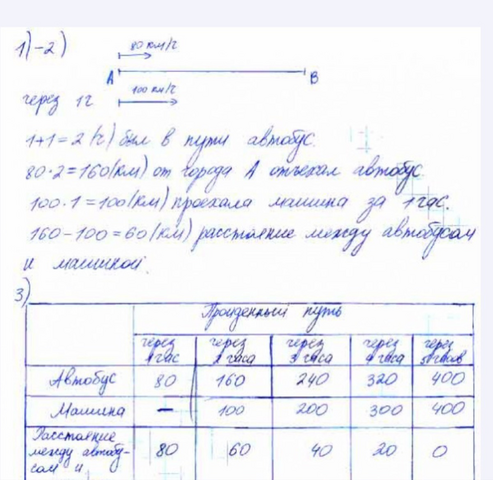 1)-2)
80 км/ч
А В
через 1ч 100 км/ч
1+1=2(ч) был в пути автобус.
80·2=160(км) от города А отъехал автобус
100·1=100(км) проехала машина за 1 час.
160-100=60(км) расстояние между автобусом
и машиной.
3)
Пройденный путь
через 1 час через 2 часа через 3 часа через 4 часа через 5 часов
Автобус 80 160 240 320 400
Машина — 100 200 300 400
Расстояние
между автобу- 80 60 40 20 0
сом и